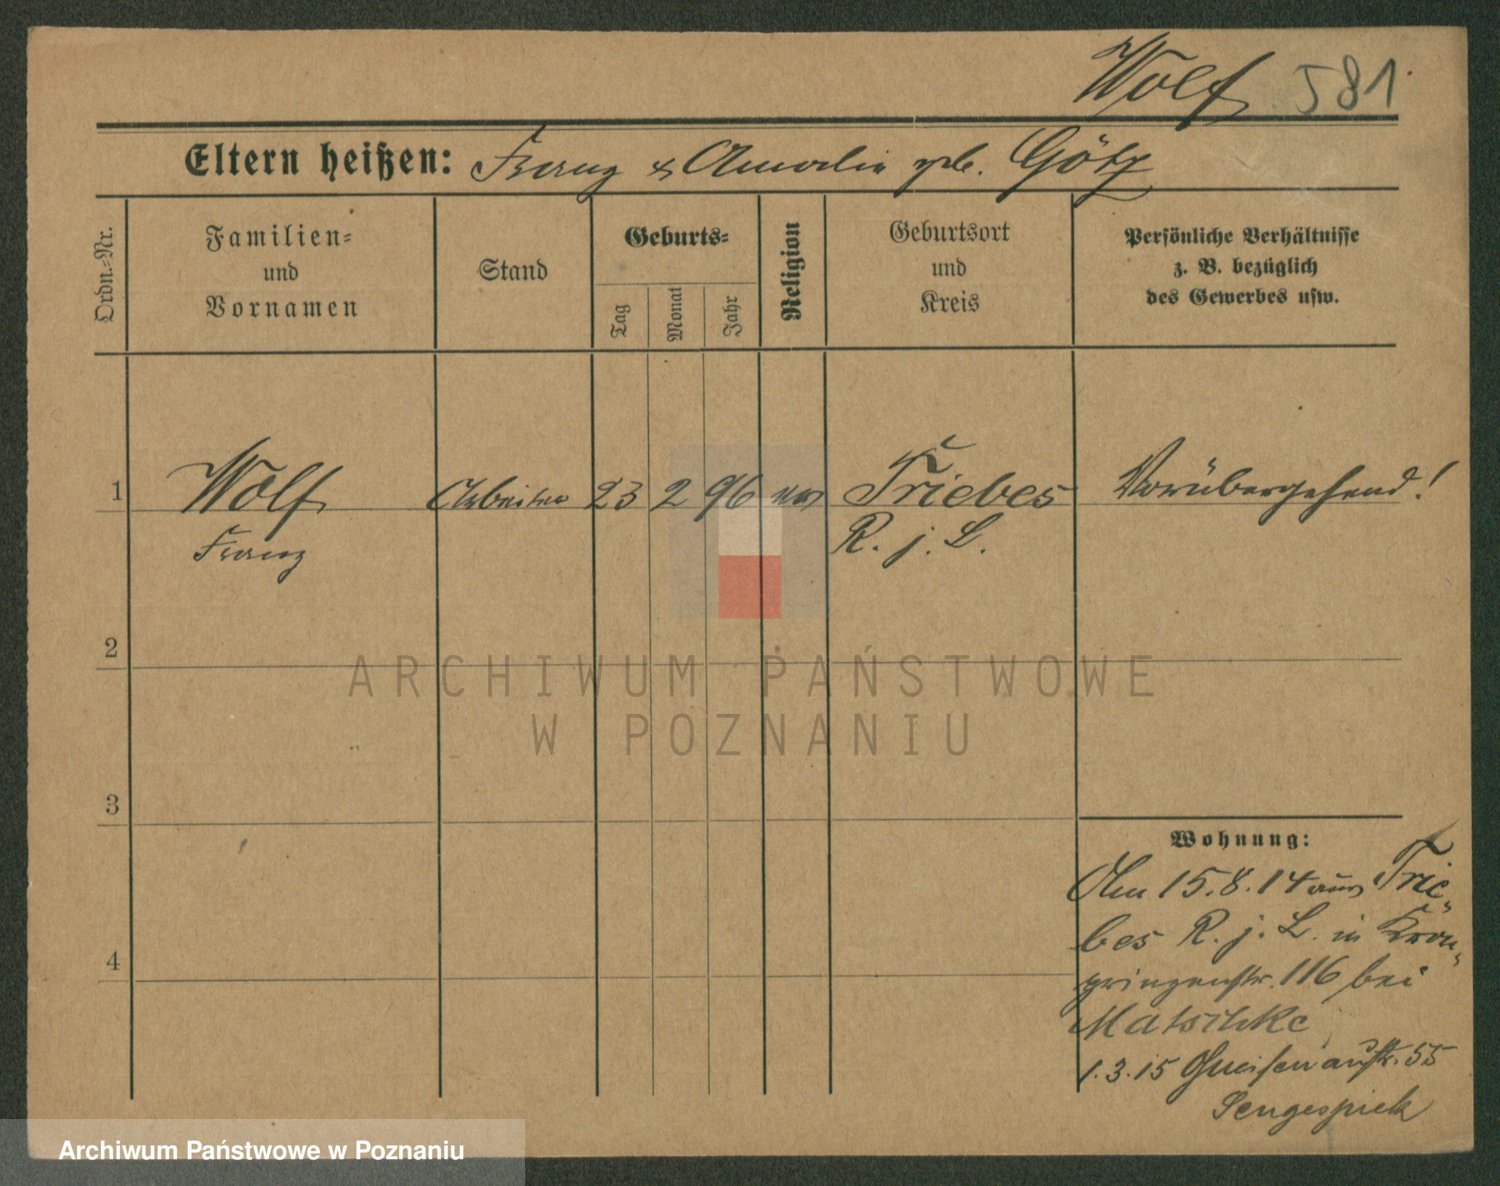 Wolf 581
Eltern heißen: Franz & Amalie geb. Götz
Ordn.=Nr.
Familien= und Vornamen
Stand
Geburts=
Tag
Monat
Jahr
Religion
Geburtsort und Kreis
Persönliche Verhältnisse z. B. bezüglich des Gewerbes usw.
1 Wolf Arbeiter 23 2 96 Triebes Vorübergehend!
Franz R. j. L.
2
ARCHIWUM PAŃSTWOWE
W POZNANIU
3
Wohnung:
Am 15.8.14 aus Trie-
bes R. j. L. in Kron-
4
prinzenstr. 116 bei
Matschke
1.3.15 Gneisenaustr. 55
Sengespiek
Archiwum Państwowe w Poznaniu